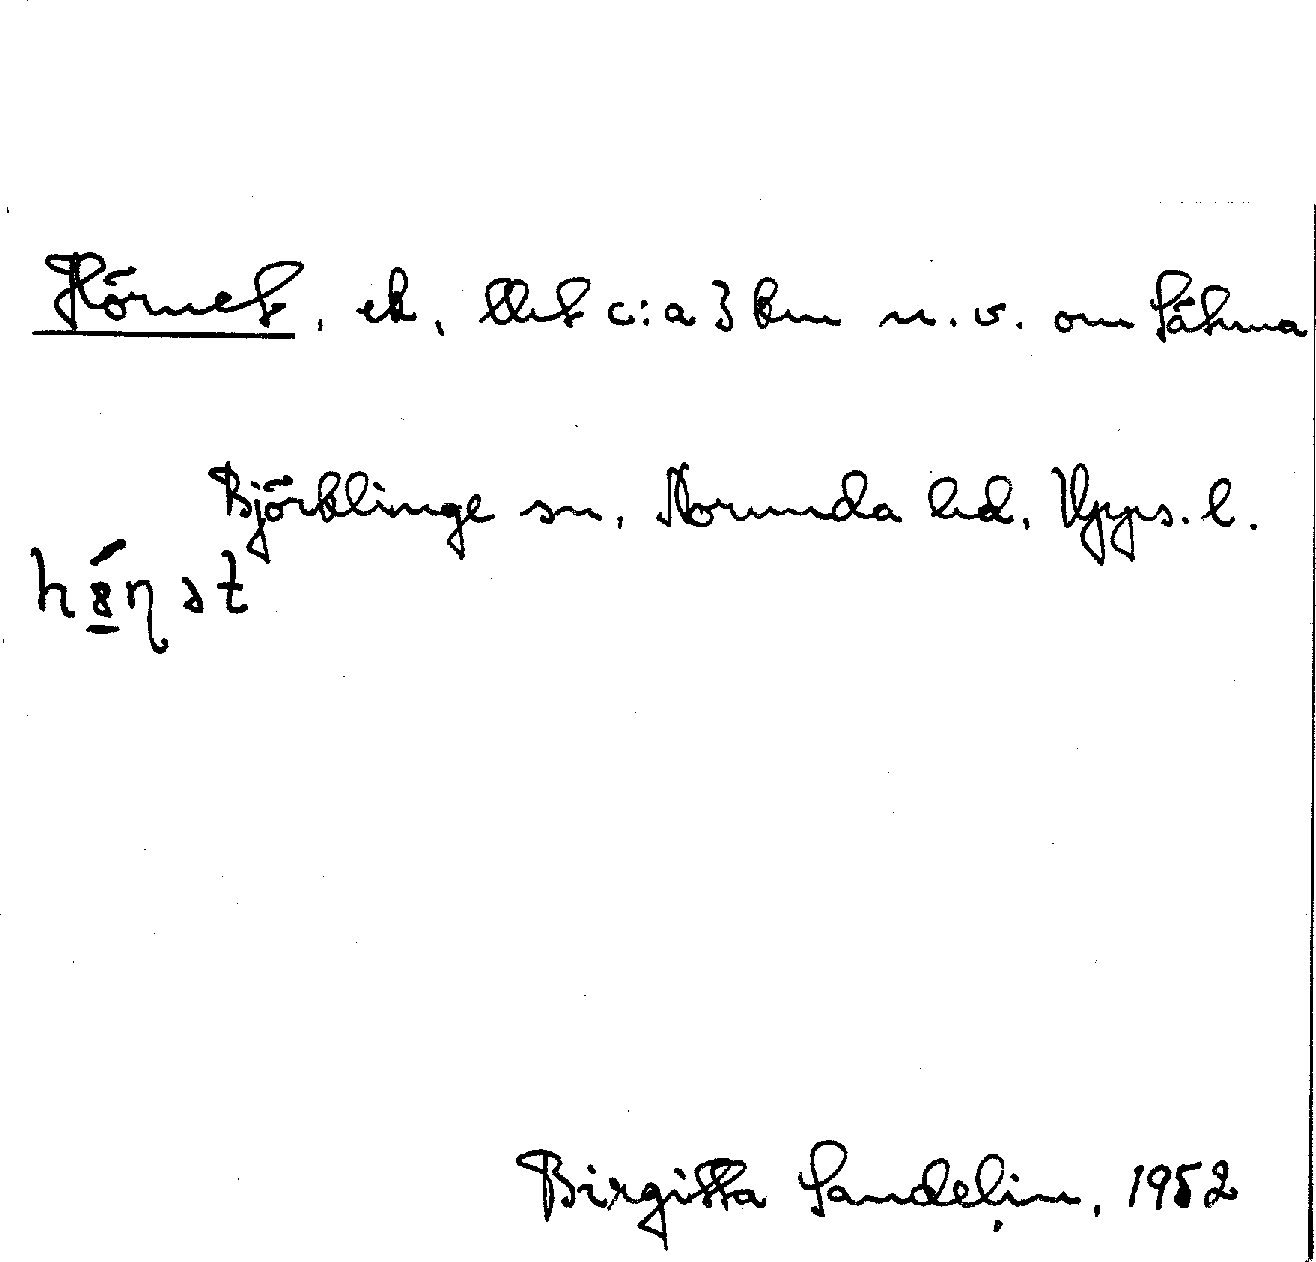 Hörnet, ek, Utet c:a 3 km n.v. om Sätuna
Björklinge sn, Norunda hd, Upps. l.
Birgitta Sandelin, 1952